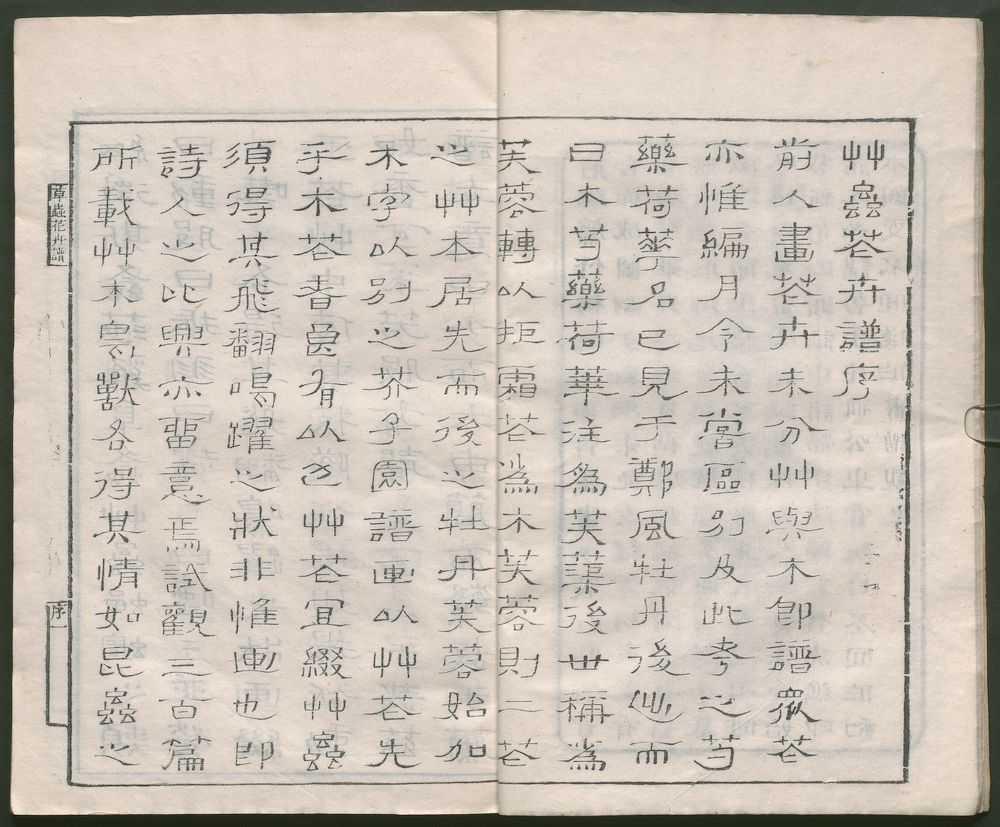 艸蟲花卉譜序
前人畫花卉未分艸與木即譜眾花
亦惟編月令未嘗區別及此考之芍
藥荷華名已見于鄭風牡丹後出而
曰木芍藥荷華注為芙蕖後世稱為
芙蓉轉以拒霜花為木芙蓉則二花
之艸本居先而後之牡丹芙蓉始加
木字以別之芥子園譜画以艸花先
乎木花者良有以也艸花宜綴艸蟲
須得其飛翻鳴躍之狀非惟画也即
詩人之比興亦留意焉試觀三百篇
所載艸木鳥獸各得其情如昆蟲之
草蟲花卉譜
序一